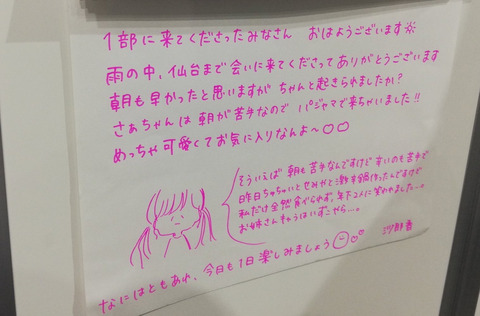 1部に来てくださったみなさん おはようございます
雨の中、仙台まで会いに来てくださってありがとうございます
朝も早かったと思いますが ちゃんと起きられましたか?
さぁちゃんは朝が苦手なので パジャマで来ちゃいました!!
めっちゃ可愛くてお気に入りなんよ〜♡♡
そういえば 朝も苦手なんですけど 辛いのも苦手で
昨日ちゅちゅいとせみかと激辛鍋作ったんですけど
私だけ全然食べられず、年下2人に笑われました…。
お姉さんキャラはいずこやら…。
なにはともあれ、今日も1日楽しみましょう♡♡